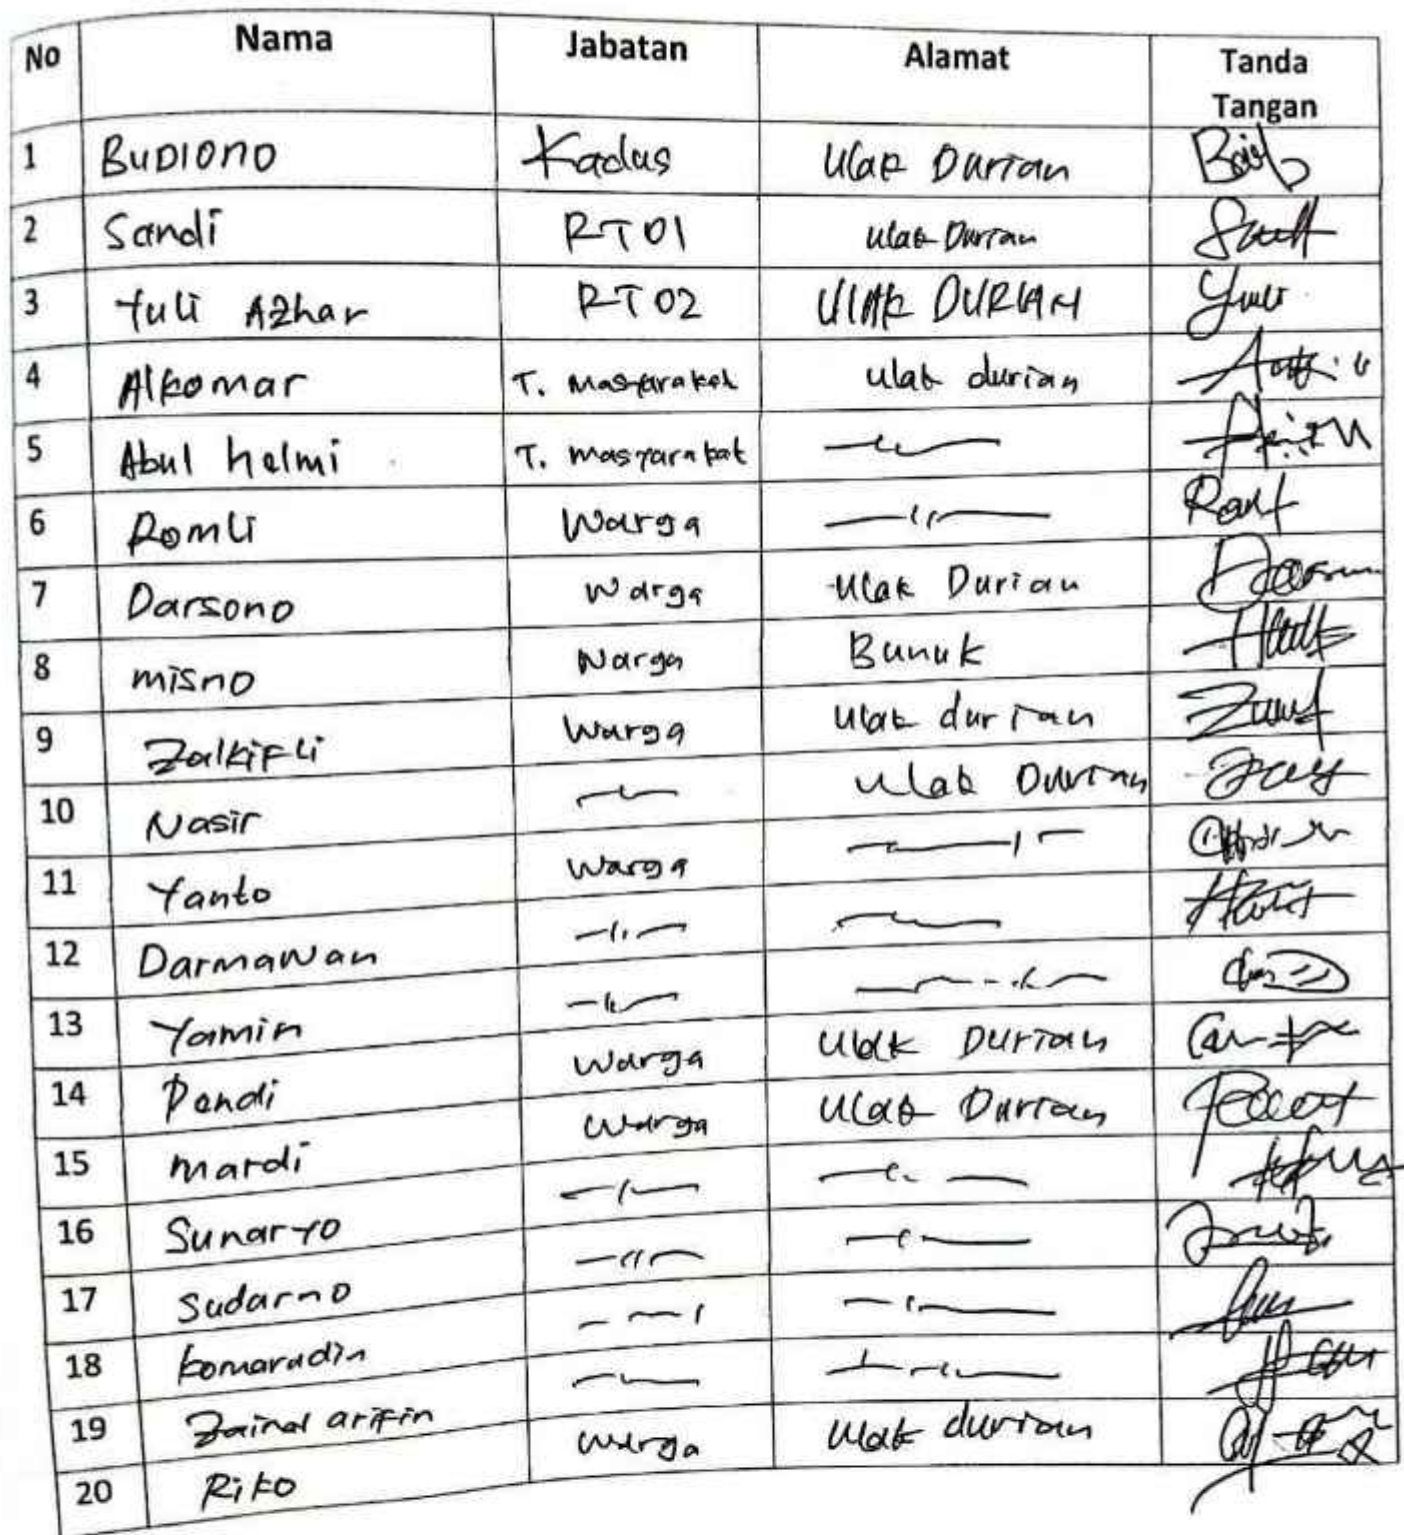 No Nama Jabatan Alamat Tanda
Tangan
1 BUDIONO Kadus Ulak Durian
2 Sandi RT 01 Ulak Durian
3 Yuli Azhar RT 02 ULAK DURIAN
4 Alkomar T. Masyarakat Ulak durian
5 Abul helmi T. masyarakat —〃—
6 Romli Warga —〃—
7 Darsono Warga Ulak Durian
8 misno Warga Bunuk
9 Zalkifli Warga Ulak durian
10 Nasir —〃— Ulak Durian
11 Yanto Warga —〃—
12 Darmawan —〃— —〃—
13 Yamin —〃— —〃—
14 Pendi Warga Ulak Durian
15 Mardi Warga Ulak Durian
16 Sunaryo —〃— —〃—
17 Sudarno —〃— —〃—
18 komaradin —〃— —〃—
19 Zainal arifin —〃— —〃—
20 Riko Warga Ulak durian